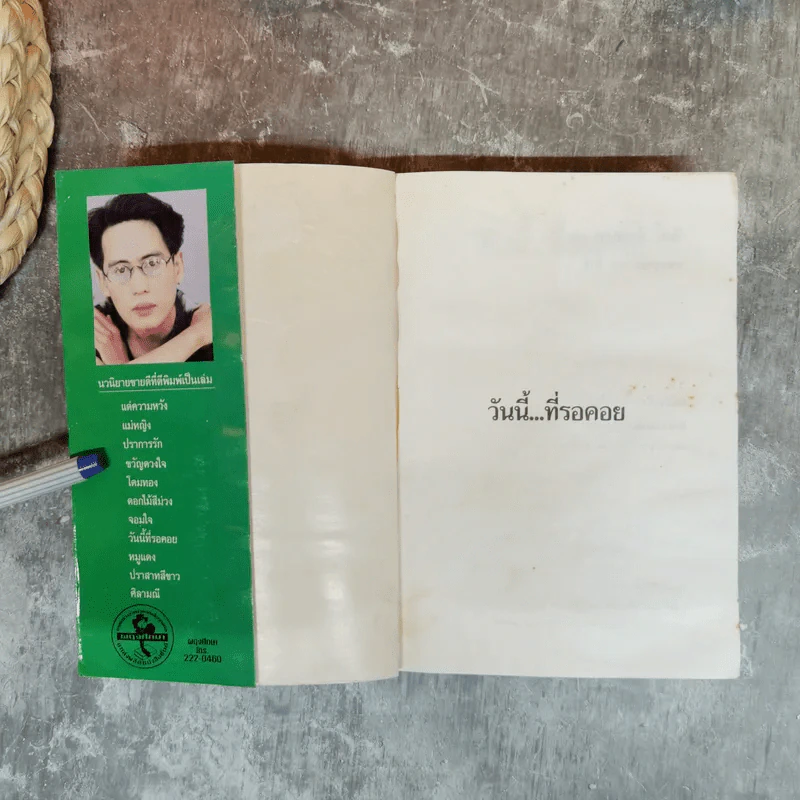 นวนิยายขายดีที่ตีพิมพ์เป็นเล่ม
แต่ความหวัง
แม่หญิง
ปราการรัก
ขวัญดวงใจ
โดมทอง
ดอกไม้สีม่วง
จอมใจ
วันนี้ที่รอคอย
หมูแดง
ปราสาทสีขาว
ศิลามณี
ผดุงศึกษา
ผดุงศึกษา
โทร
227-0460
วันนี้...ที่รอคอย